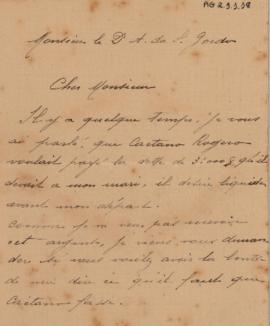 AG 2.3.3.38
Monsieur le Dr A. de S. Gordo
Cher Monsieur
Il y a quelque temps, je vous
ai parlé, que Caetano Rogero
voulait payé la dette de 3:000$ qu'il
devait a mon mari, il désire liquider
avant mon départ.
Comme je ne veux pas recevoir
cet argent, je viens vous deman
der si vous voulez avoir la bonté
de me dire ce qu'il faut que
Caetano fasse.